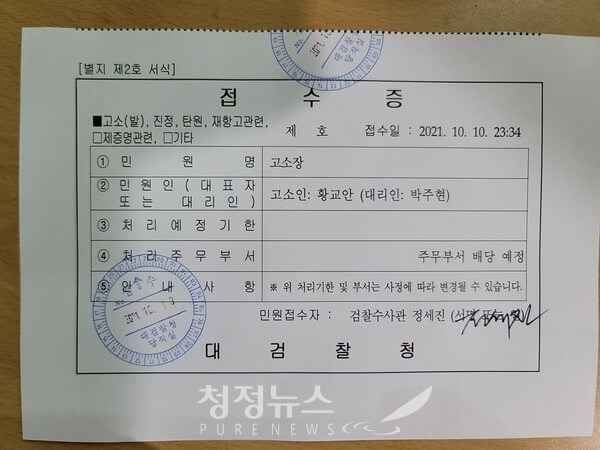 [별지 제2호 서식]
접 수 증
■고소(발), 진정, 탄원, 재항고관련,
□제증명관련, □기타
제 호 접수일 : 2021. 10. 10. 23:34
① 민 원 명 고소장
② 민 원 인 ( 대 표 자 또 는 대 리 인 ) 고소인: 황교안 (대리인: 박주현)
③ 처 리 예 정 기 한
④ 처 리 주 무 부 서 주무부서 배당 예정
⑤ 안 내 사 항 ※ 위 처리기한 및 부서는 사정에 따라 변경될 수 있습니다.
민원접수자 : 검찰수사관 정세진
대 검 찰 청
대검찰청
당직실
대검찰청
당직실
청정뉴스
PURENEWS